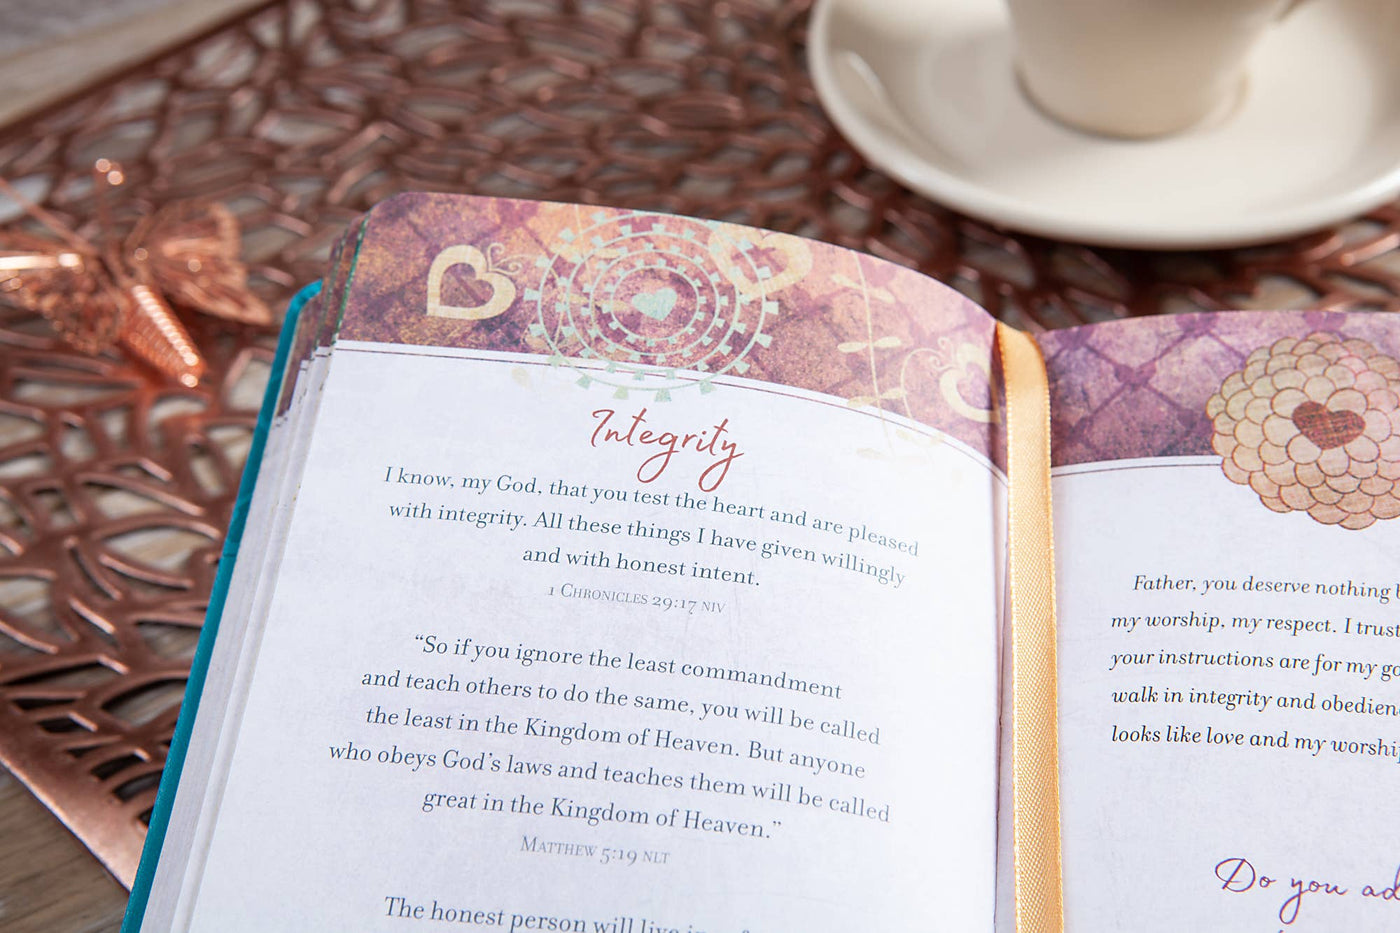 Integrity
I know, my God, that you test the heart and are pleased
with integrity. All these things I have given willingly
and with honest intent.
1 Chronicles 29:17 NIV
“So if you ignore the least commandment
and teach others to do the same, you will be called
the least in the Kingdom of Heaven. But anyone
who obeys God’s laws and teaches them will be called
great in the Kingdom of Heaven.”
Matthew 5:19 NLT
The honest person will live
Father, you deserve nothing
my worship, my respect. I trust
your instructions are for my
walk in integrity and
looks like love and my
Do you